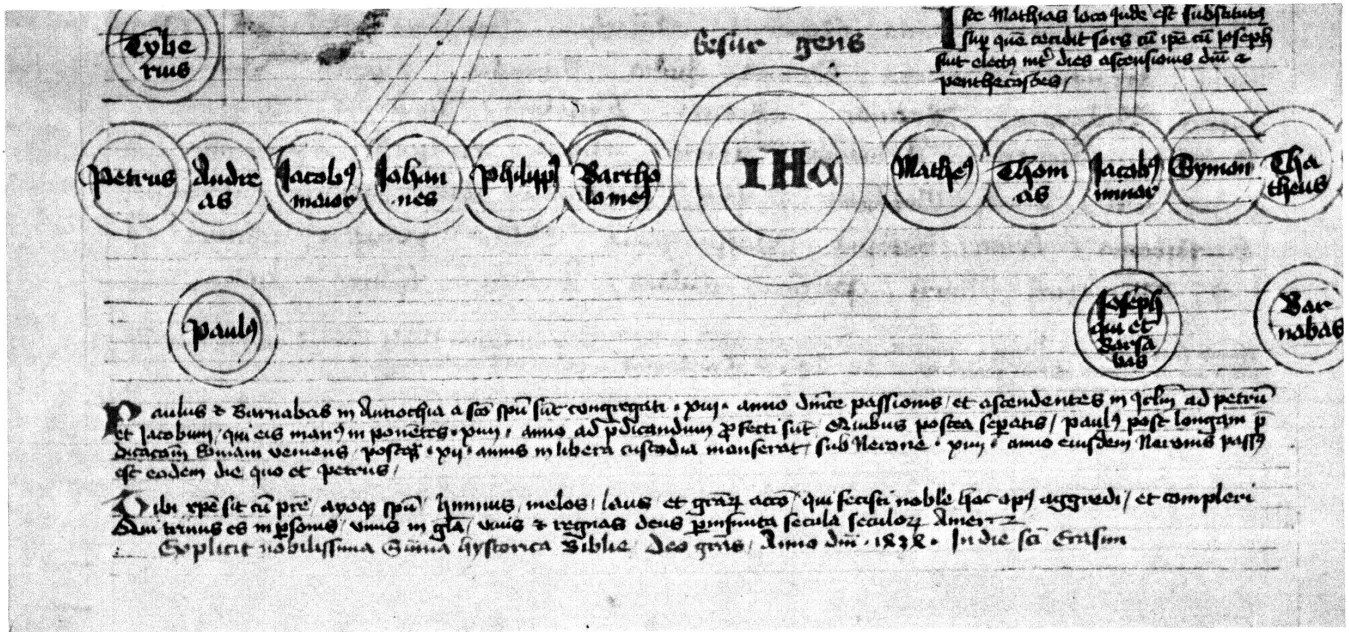 Tybe
rius
besur gens
Iste Mathias loco Jude est substitutꝰ
sup quē cecidit sors cū ipē cū Joseph
sūt electꝰ int̄ dies ascensionis dnī ⁊
penthecostes /
Petrus
Andre
as
Jacobꝰ
maior
Johan
nes
Philippꝰ
Bartho
lomeꝰ
IHC
Matheꝰ
Thom
as
Jacobꝰ
minor
Symon
Tha
theus
Paulꝰ
Joseph
qui et
Barsa
bas
Bar
nabas
Paulus ⁊ Barnabas in Antiochia a sc̄o spū sūt congregati · xiii · anno dn̄ice passionis / et ascendentes in Jrlm̄ ad petrū
et Jacobum / qui eis manꝰ inponētes · xiiii · anno ad p̄dicandum ꝓfecti sūt postea sepatis / paulꝰ post longam p̄
dicac̄om̄ Romam veniens / postqꝫ · xii · annis in libera custodia manserat / sub Nerone · xiiii · anno eiusdem Neronis passꝰ
est eodem die quo et Petrus /
Tibi xp̄e sit cū pr̄e / ayoqꝫ spū / himnus / melos / laus et grāꝝ acc̄o / qui fecisti nobl̄e hoc opꝰ aggredi / et compleri
Qui trinus es in p̄sonis / vnus in gl̄a / viuis ⁊ regnas deus p̄ infinita secula seculoꝝ Amen
Explicit nobilissima Sūma hystorica Biblie / Deo grās / Anno dnī · 1838 · In die sc̄i Erasmi